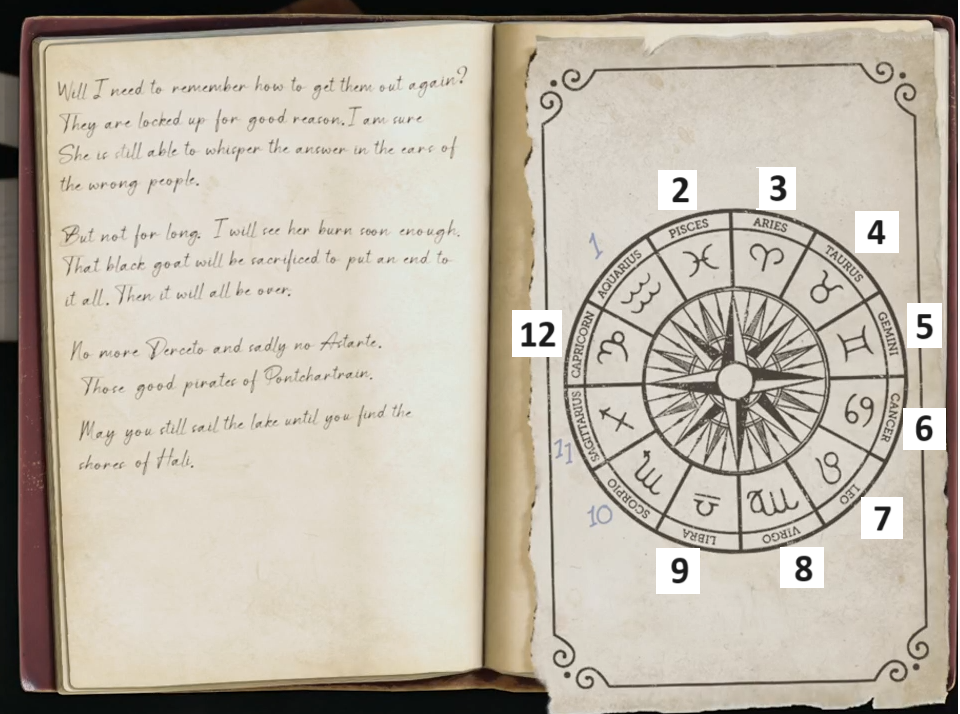 Well I need to remember how to get them out again?
They are locked up for good reason. I am sure
She is still able to whisper the answer in the ears of
the wrong people.
But not for long. I will see her burn soon enough.
That black goat will be sacrificed to put an end to
it all. Then it will all be over.
No more Derceto and sadly no Astarte.
Those good pirates of Pontchartrain.
May you still sail the lake until you find the
shores of Hali.
1
2
3
4
5
6
7
8
9
10
11
12
AQUARIUS
PISCES
ARIES
TAURUS
GEMINI
CANCER
LEO
VIRGO
LIBRA
SCORPIO
SAGITTARIUS
CAPRICORN